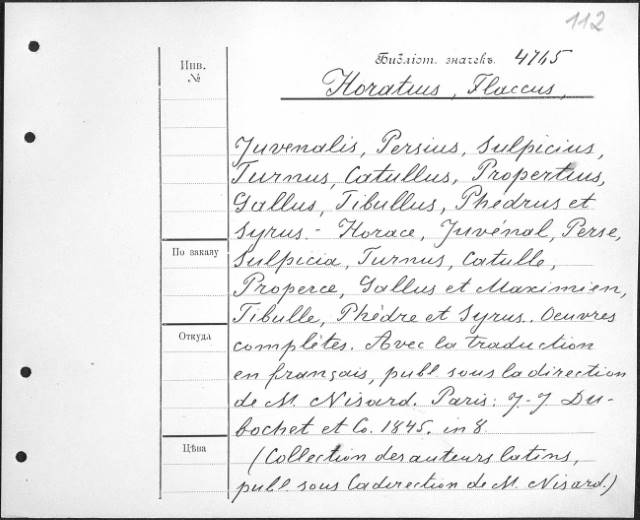 112
Библіот. значекъ. 4745
Инв.
№
Horatius, Flaccus,
Juvenalis, Persius, Sulpicius,
Turnus, Catullus, Propertius,
Gallus, Tibullus, Phedrus et
Syrus. - Horace, Juvénal, Perse,
По заказу
Sulpicia, Turnus, Catulle,
Properce, Gallus et Maximien,
Tibulle, Phèdre et Syrus. Oeuvres
Откуда
complètes. Avec la traduction
en français, publ. sous la direction
de M. Nisard. Paris: J.-J. Du-
bochet et Co. 1845. in 8
Цѣна
(Collection des auteurs latins,
publ. sous la direction de M. Nisard.)